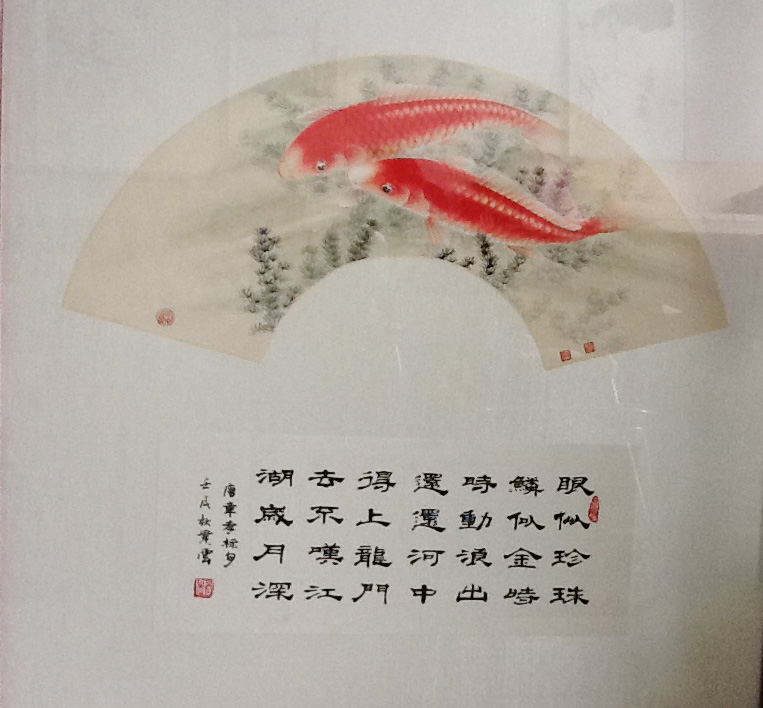 眼似珍珠
鱗似金時
時動浪出
還還河中
得上龍門
去不嘆江
湖歲月深
唐章孝標句
壬戌秋